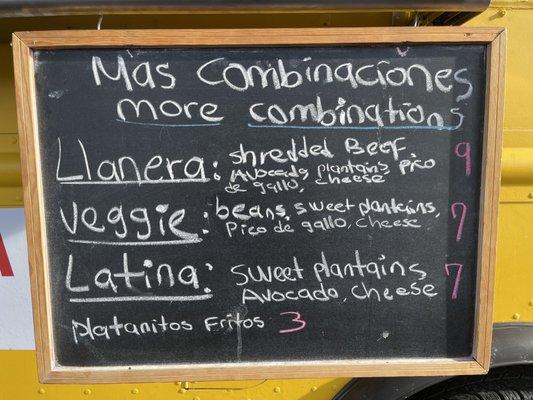 Mas Combinaciones
more combinations
Llanera: shredded Beef, 9
Avocado, plantains, pico
de gallo, cheese
Veggie: beans, sweet plantains, 7
Pico de gallo, cheese
Latina: sweet plantains 7
Avocado, cheese
Platanitos Fritos 3